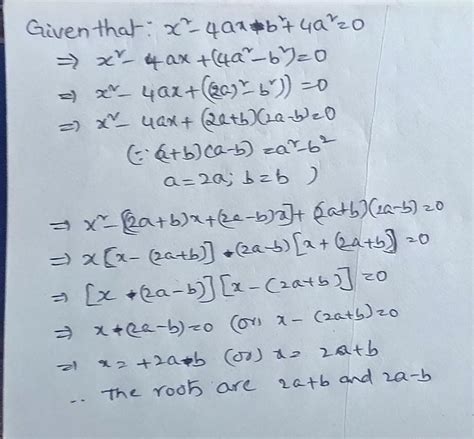 Given that: x² - 4ax - b² + 4a² = 0
⇒ x² - 4ax + (4a² - b²) = 0
⇒ x² - 4ax + ((2a)² - b²)) = 0
⇒ x² - 4ax + (2a+b)(2a-b) = 0
(∵ (a+b)(a-b) = a² - b²
a = 2a; b = b )
⇒ x² - [(2a+b)x + (2a-b)x] + (2a+b)(2a-b) = 0
⇒ x[x - (2a+b)] - (2a-b)[x + (2a+b)] = 0
⇒ [x - (2a-b)][x - (2a+b)] = 0
⇒ x - (2a-b) = 0 (or) x - (2a+b) = 0
⇒ x = +2a - b (or) x = 2a+b
∴ the roots are 2a+b and 2a-b